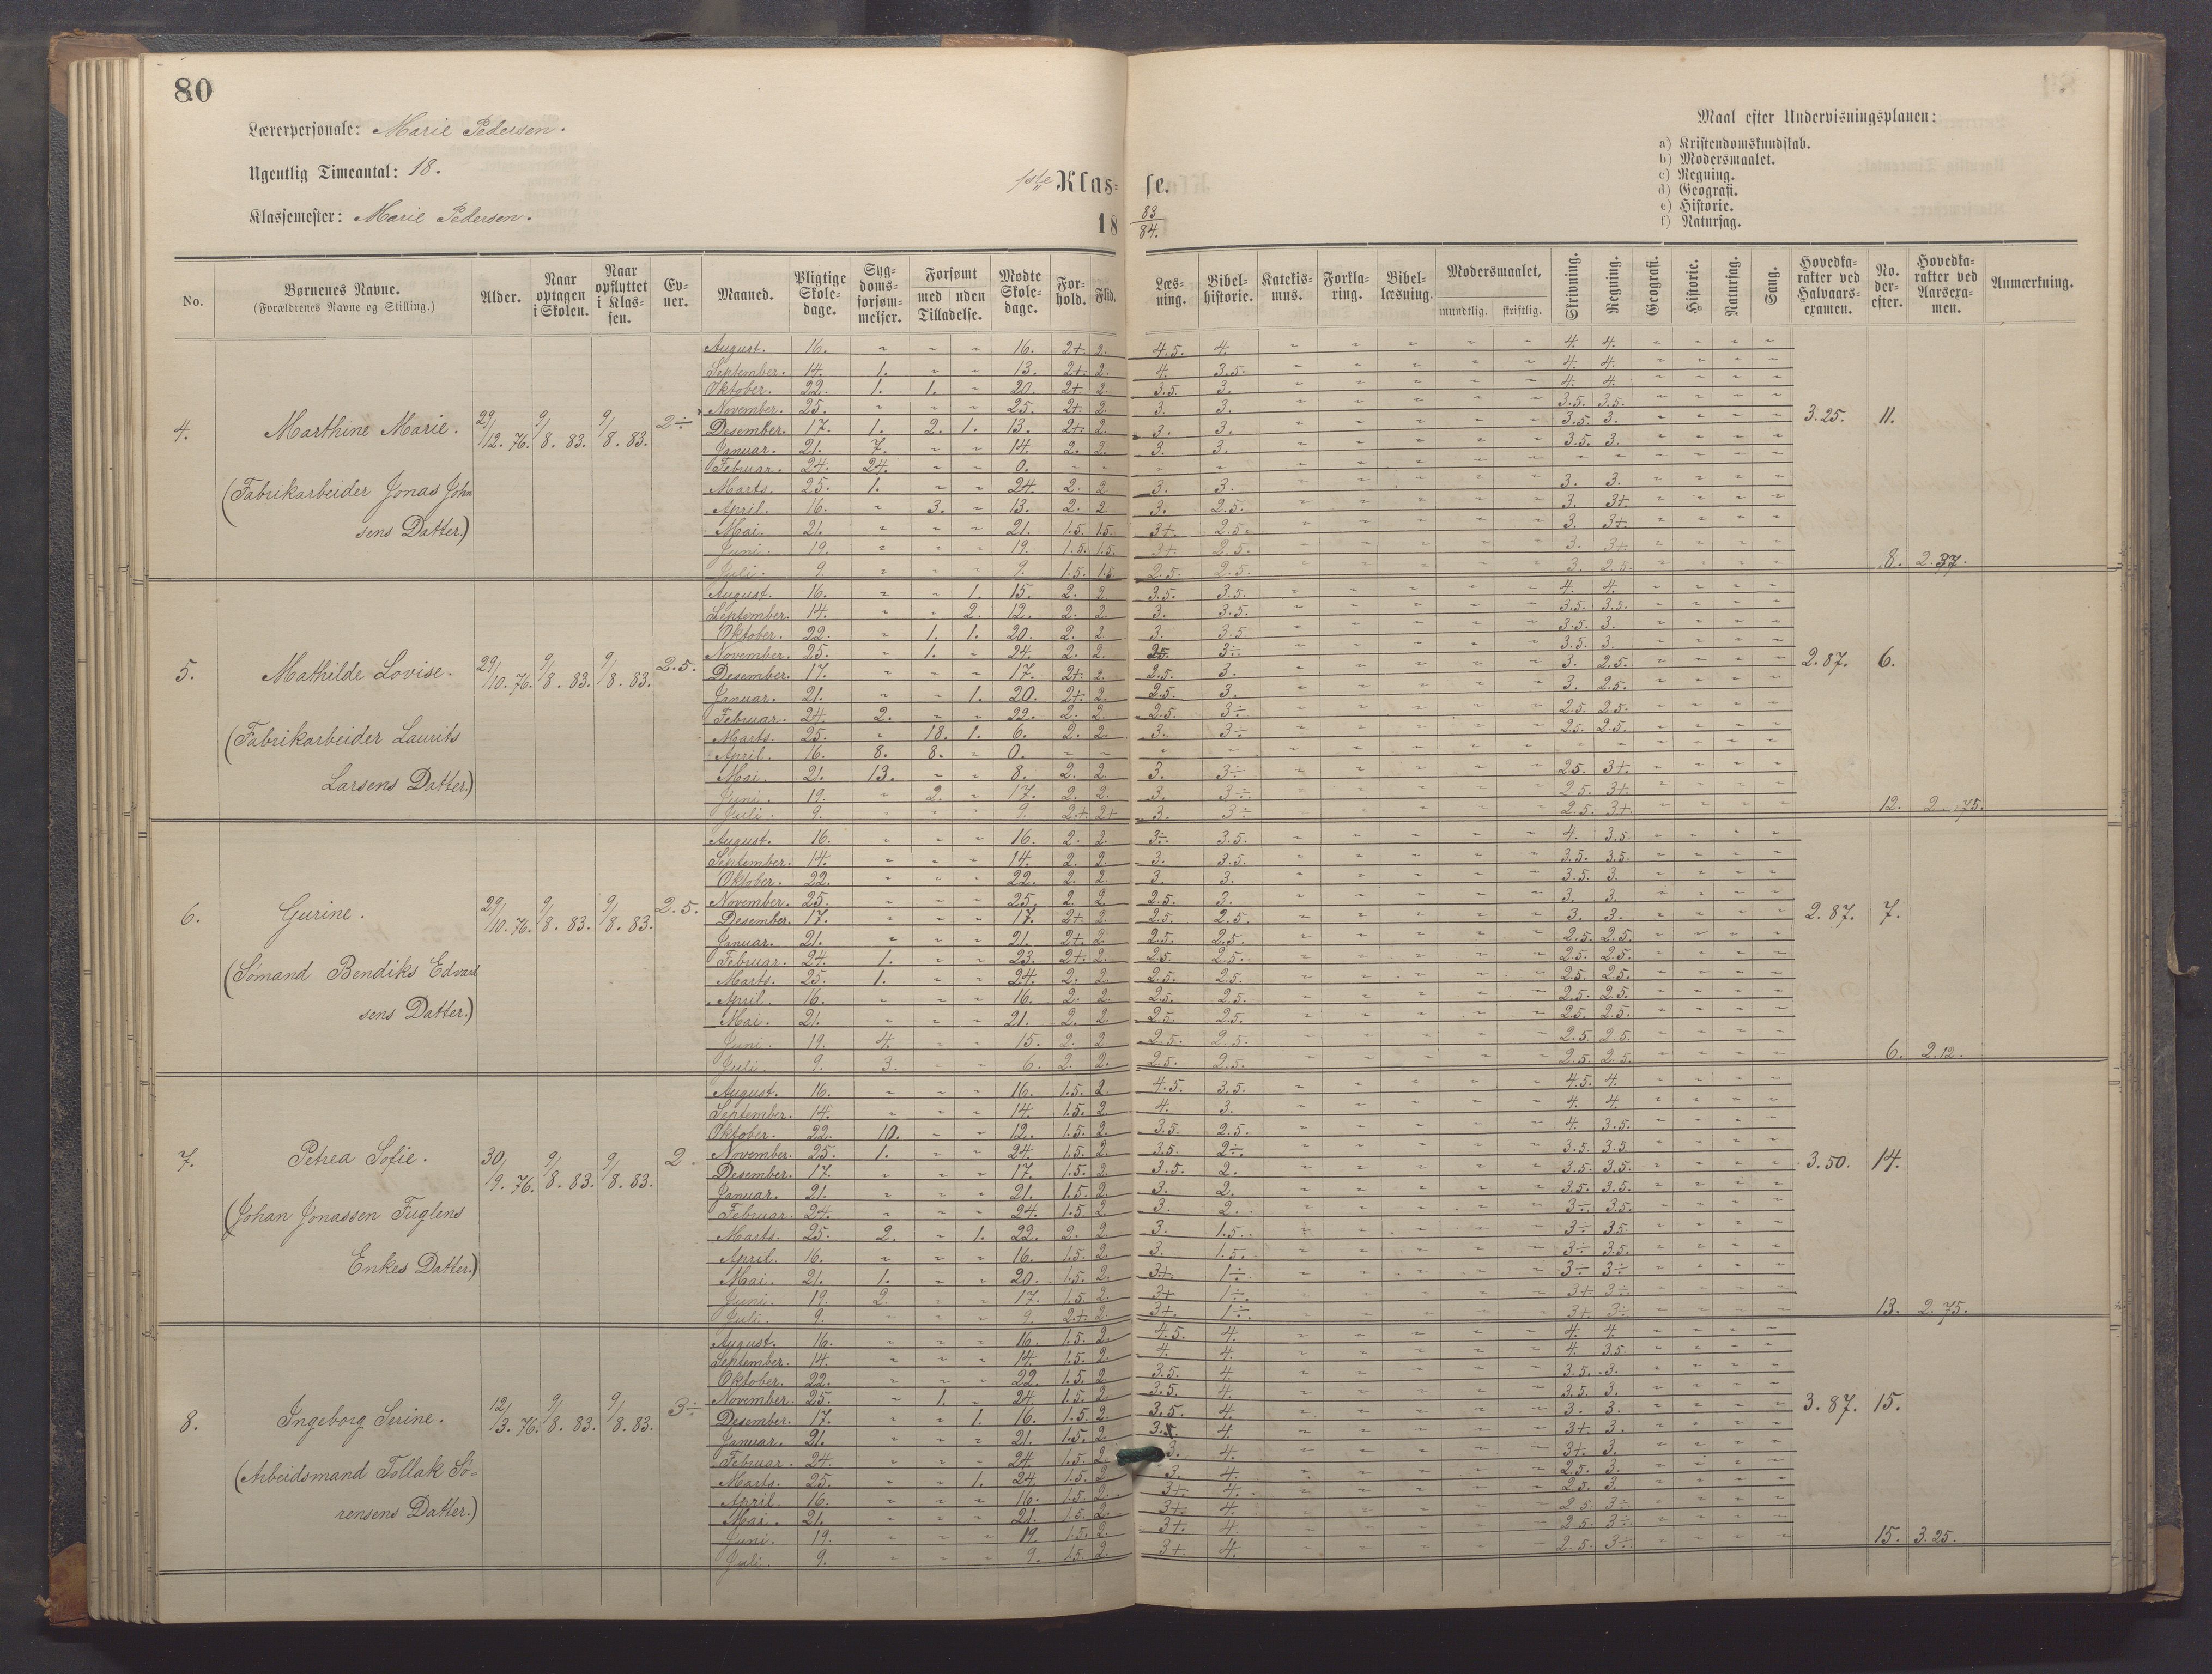 80
Lærerpersonale: Marie Pedersen.
Ugentlig Timeantal: 18.
Klassemester: Marie Pedersen.
1ste Klasse.
18 83/84.
Maal efter Undervisningsplanen:
a) Kristendomskundskab.
b) Modersmaalet.
c) Regning.
d) Geografi.
e) Historie.
f) Naturfag.
No. Børnenes Navne. (Forældrenes Navne og Stilling.) Alder. Naar optagen i Skolen. Naar opflyttet i Klassen. Evner. Maaned. Pligtige Skoledage. Sygdomsforsømmelser. Forsømt med uden Tilladelse. Mødte Skoledage. Forhold. Flid. Læsning. Bibelhistorie. Katekismus. Forklaring. Bibellæsning. Modersmaalet, mundtlig. skriftlig. Skrivning. Regning. Geografi. Historie. Naturfag. Sang. Hovedkarakter ved Halvaarsexamen. No. derefter. Hovedkarakter ved Aarsexamen. Anmærkning.
August. 16. " " " 16. 2+. 2. 4.5. 4. " " " " " 4. 4. " " " "
September. 14. 1. " " 13. 2+. 2. 4. 3.5. " " " " " 4. 4. " " " "
Oktober. 22. 1. 1. " 20. 2+. 2. 3.5. 3. " " " " " 4. 4. " " " "
November. 25. " " " 25. 2+. 2. 3. 3. " " " " " 3.5. 3.5. " " " "
4. Marthine Marie. 29/12. 76. 9/8. 83. 9/8. 83. 2÷ Desember. 17. 1. 2. 1. 13. 2+. 2. 3. 3. " " " " " 3.5. 3. " " " " 3.25. 11.
Januar. 21. 7. " " 14. 2. 2. 3. 3. " " " " " 3.5. 3. " " " "
Februar. 24. 24. " " 0. " " " " " " " " " " " " " " "
(Fabrikarbeider Jonas John Marts. 25. 1. " " 24. 2. 2 3. 3. " " " " " 3. 3. " " " "
April. 16. " 3. " 13. 2. 2 3. 2.5. " " " " " 3. 3+. " " " "
sens Datter.) Mai. 21. " " " 21. 1.5. 1.5. 3+. 2.5. " " " " " 3. 3+. " " " "
Juni. 19. " " " 19. 1.5. 1.5. 3+. 2.5. " " " " " 3. 3+. " " " "
Juli. 9. " " " 9. 1.5. 1.5. 2.5. 2.5. " " " " " 3. 2.5. " " " " 8. 2.37.
August. 16. " " 1. 15. 2. 2. 3.5. 3.5. " " " " " 4. 4. " " " "
September. 14. " " 2. 12. 2. 2. 3. 3.5. " " " " " 3.5. 3.5. " " " "
Oktober. 22. " 1. 1. 20. 2. 2. 3. 3.5. " " " " " 3.5. 3. " " " "
November. 25. " 1. " 24. 2. 2. 2.5. 3÷ " " " " " 3.5. 3. " " " "
5. Mathilde Lovise. 29/10. 76. 9/8. 83. 9/8. 83. 2.5. Desember. 17. " " " 17. 2+. 2. 2.5. 3. " " " " " 3. 2.5. " " " " 2.87. 6.
Januar. 21. " " 1. 20. 2+. 2. 2.5. 3. " " " " " 3. 2.5. " " " "
Februar. 24. 2. " " 22. 2. 2. 2.5. 3÷ " " " " " 2.5. 2.5. " " " "
(Fabrikarbeider Laurits Marts. 25. " 18. 1. 6. 2. 2. 3. 3÷ " " " " " 2.5. 2.5. " " " "
April. 16. 8. 8. " 0. " " " " " " " " " " " " " " "
Larsens Datter.) Mai. 21. 13. " " 8. 2. 2. 3. 3÷ " " " " " 2.5. 3+. " " " "
Juni. 19. " 2. " 17. 2. 2. 3. 3÷ " " " " " 2.5. 3+. " " " "
Juli. 9. " " " 9. 2+. 2+ 3. 3÷ " " " " " 2.5. 3+. " " " " 12. 2.75.
August. 16. " " " 16. 2. 2. 3÷. 3.5. " " " " " 4. 3.5. " " " "
September. 14. " " " 14. 2. 2. 3. 3.5. " " " " " 3.5. 3.5. " " " "
Oktober. 22. " " " 22. 2. 2. 3. 3. " " " " " 3.5. 3. " " " "
November. 25. " " " 25. 2. 2. 2.5. 3. " " " " " 3. 3. " " " "
6. Gurine. 29/10. 76. 9/8. 83. 9/8. 83. 2.5. Desember. 17. " " " 17. 2+. 2. 2.5. 2.5. " " " " " 3. 3. " " " " 2.87. 7.
Januar. 21. " " " 21. 2+. 2. 2.5. 2.5. " " " " " 2.5. 2.5. " " " "
(Sømand Bendiks Edvard Februar. 24. 1. " " 23. 2+. 2. 2.5. 2.5. " " " " " 2.5. 2.5. " " " "
Marts. 25. 1. " " 24. 2. 2. 2.5. 2.5. " " " " " 2.5. 2.5. " " " "
April. 16. " " " 16. 2. 2. 2.5. 2.5. " " " " " 2.5. 2.5. " " " "
sens Datter.) Mai. 21. " " " 21. 2. 2. 2.5. 2.5. " " " " " 2.5. 2.5. " " " "
Juni. 19. 4. " " 15. 2. 2 2.5. 2.5. " " " " " 2.5. 2.5. " " " "
Juli. 9. 3. " " 6. 2. 2. 2.5. 2.5. " " " " " 2.5. 2.5. " " " " 6. 2.12.
August. 16. " " " 16. 1.5. 2. 4.5. 3.5. " " " " " 4.5. 4. " " " "
September. 14. " " " 14. 1.5. 2. 4. 3. " " " " " 4. 4. " " " "
Oktober. 22. 10. " " 12. 1.5. 2. 3.5. 2.5. " " " " " 4. 3.5. " " " "
November. 25. 1. " " 24. 1.5. 2. 3.5. 2÷. " " " " " 3.5. 3.5 " " " "
7. Petrea Sofie. 30/9. 76. 9/8. 83. 9/8. 83. 2. Desember. 17. " " " 17. 1.5. 2. 3.5. 2. " " " " " 3.5. 3.5. " " " " 3.50. 14.
Januar. 21. " " " 21. 1.5. 2. 3. 2. " " " " " 3.5. 3.5. " " " "
(Johan Jonassen Fuglens Februar. 24. " " " 24. 1.5. 2 3. 2. " " " " " 3÷ 3.5. " " " "
Marts. 25. 2. " 1. 22. 2. 2 3. 1.5. " " " " " 3÷ 3.5. " " " "
Enkes Datter.) April. 16. " " " 16. 1.5. 2. 3. 1.5. " " " " " 3÷ 3.5. " " " "
Mai. 21. 1. " " 20. 1.5. 2. 3+. 1÷. " " " " " 3÷ 3÷ " " " "
Juni. 19. 2. " " 17. 1.5. 2. 3+ 1÷. " " " " " 3+ 3÷ " " " "
Juli. 9. " " " 9. 2+. 2. 3+. 1÷. " " " " " 3+ 3÷ " " " " 13. 2.75.
August. 16. " " " 16. 1.5. 2. 4.5. 4. " " " " " 4. 4. " " " "
September. 14. " " " 14. 1.5. 2. 4. 4. " " " " " 4. 3.5. " " " "
Oktober. 22. " " " 22. 1.5. 2. 3.5. 4. " " " " " 3.5. 3. " " " "
November. 25. " 1. " 24. 1.5. 2. 3.5. 4. " " " " " 3.5. 3. " " " "
8. Ingeborg Serine. 12/3. 76. 9/8. 83. 9/8. 83. 3÷ Desember. 17. " " 1. 16. 1.5. 2. 3.5. 4. " " " " " 3. 3. " " " " 3.87. 15.
Januar. 21. " " " 21. 1.5. 2. 4. " " " " " 3+. 3. " " " "
(Arbeidsmand Tollak Sø- Februar. 24. " " " 24 1.5. 2 3. 4. " " " " " 3+. 3. " " " "
Marts. 25. " " 1. 24. 1.5. 2 3. 4. " " " " " 2.5. 3. " " " "
rensens Datter.) April. 16. " " " 16. 1.5. 2. 3+ 4. " " " " " 2.5. 3. " " " "
Mai. 21. " " " 21. 1.5. 2. 3+. 4. " " " " " 2.5. 3÷. " " " "
Juni. 19. " " " 19 1.5. 2. 3+. 4. " " " " " 2.5. 3÷. " " " "
Juli. 9. " " " 9. 1.5. 2. 3+. 4. " " " " " 2.5. 3÷. " " " " 15. 3.25.